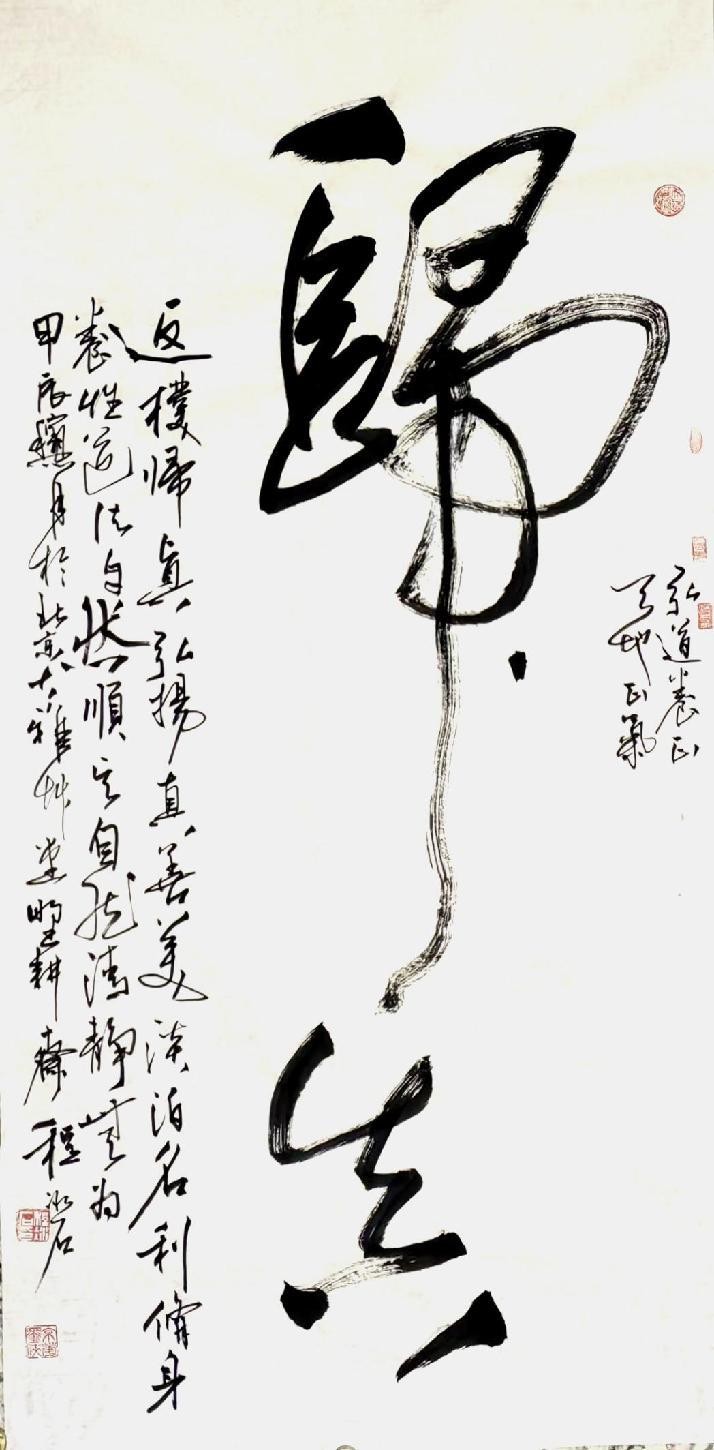 弘道養正
天地正氣
歸真
返樸歸真弘揚真善美淡泊名利脩身
養性道法自然順其自然清靜無為
甲辰穐月於北京大雅艸堂墅耕齋程冰石